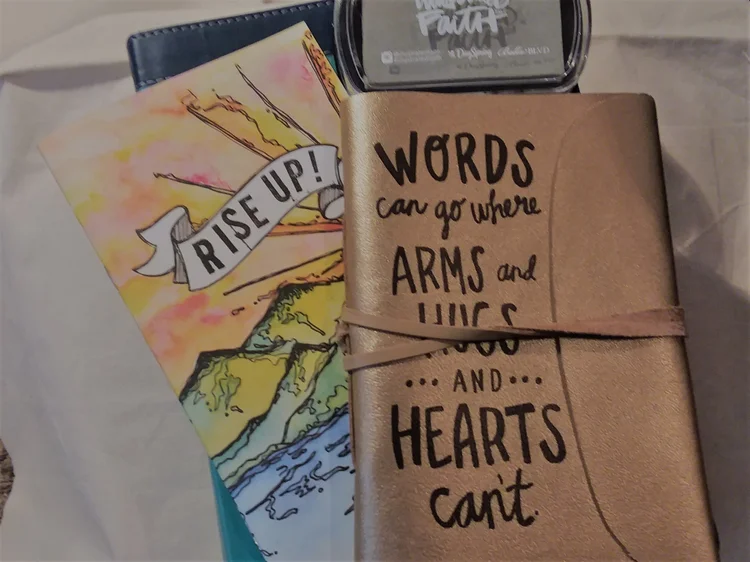 Faith
DaySpring
RISE UP!
WORDS
can go where
ARMS and
HUGS
••• AND •••
HEARTS
can't.